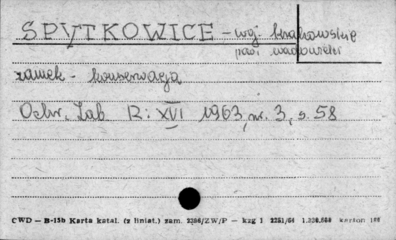 SPYTKOWICE - woj. krakowskie
pow. wadowicki
zamek - konserwacja
Ochr. Zab. R: XVI 1963, nr. 3, s. 58
CWD — B-15b Karta katal. (z liniat.) zam. 2286/ZW/P — kzg 1 2251/54 1.228.568 karton 180